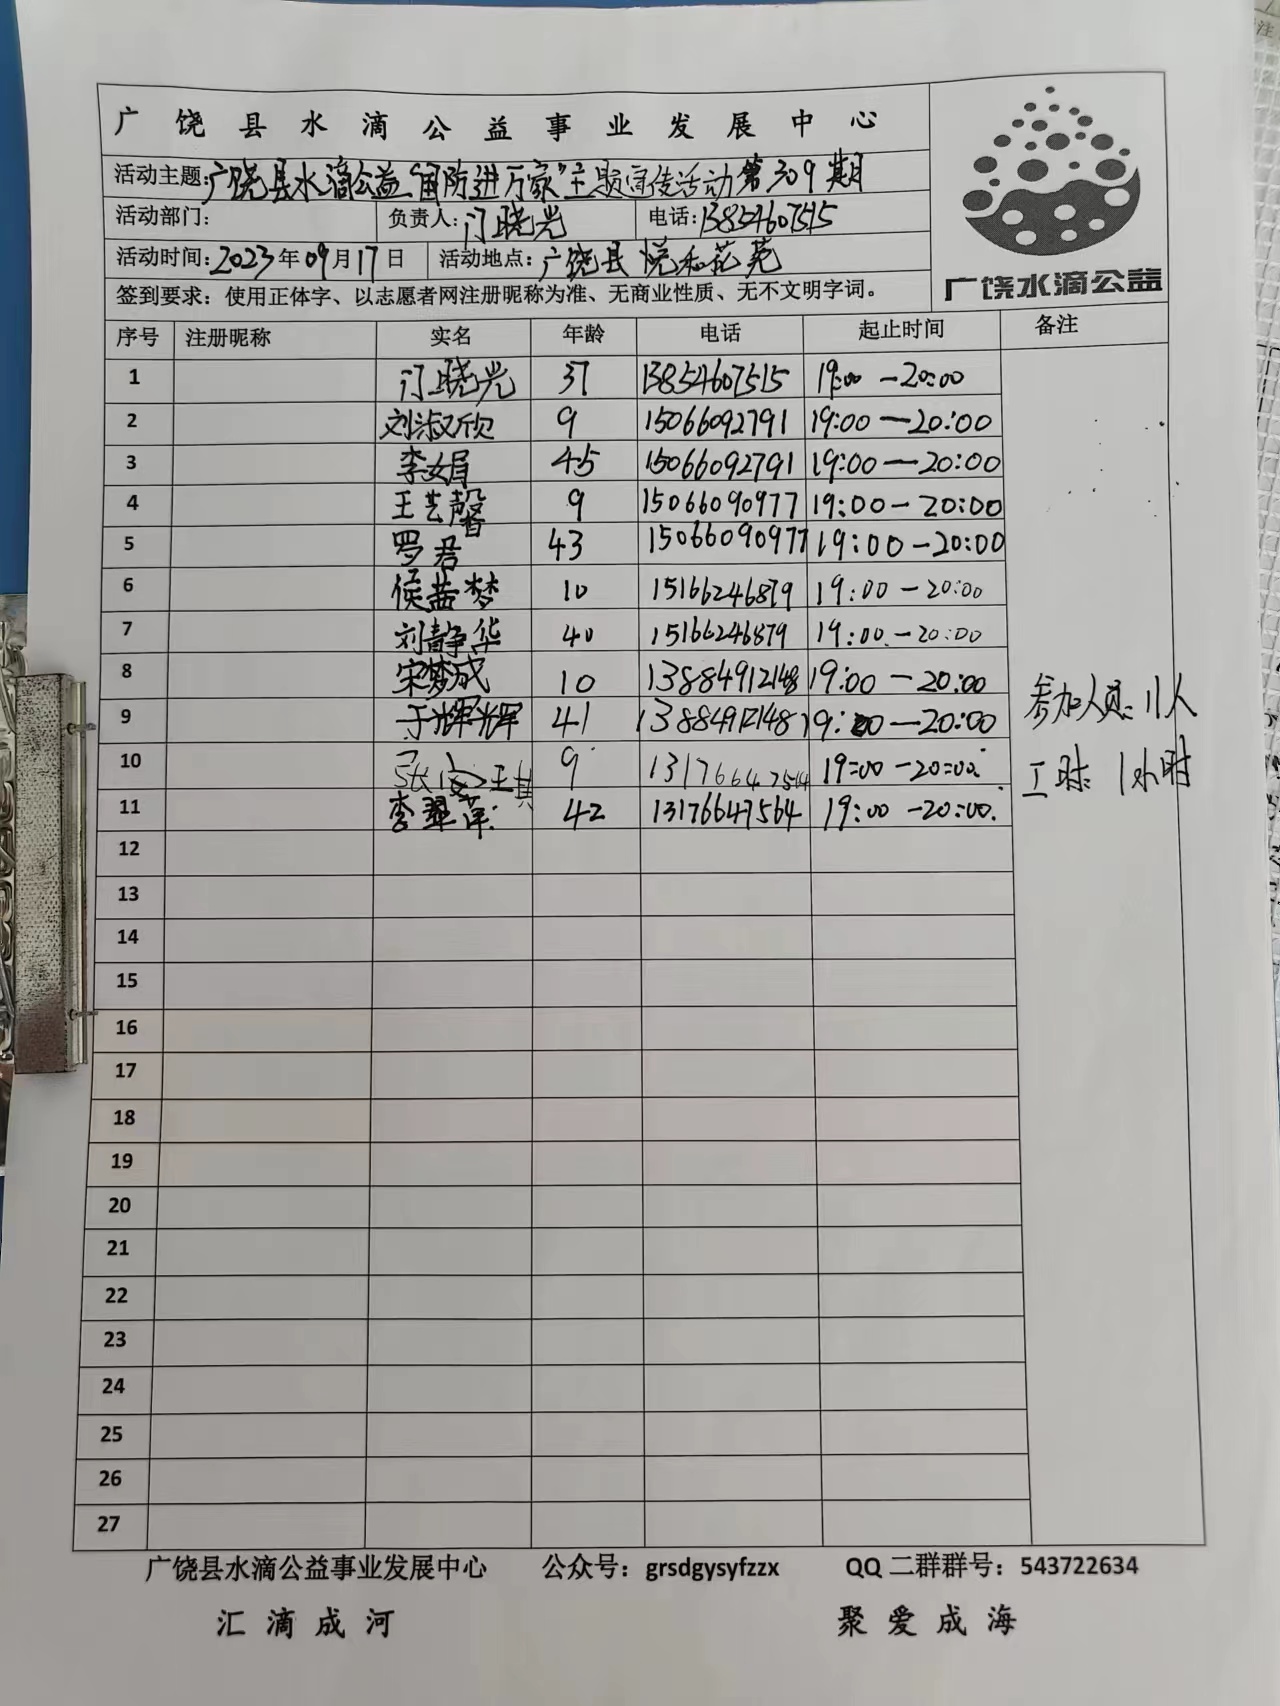 广饶县水滴公益事业发展中心
活动主题:广饶县水滴公益"国防进万家"主题宣传活动第309期
活动部门: 负责人:门晓光 电话:13854607515
活动时间:2023年09月17日 活动地点:广饶县悦和花苑
签到要求：使用正体字、以志愿者网注册昵称为准、无商业性质、无不文明字词。
广饶水滴公益
序号 注册昵称 实名 年龄 电话 起止时间 备注
1 门晓光 37 13854607515 19:00-20:00
2 刘淑欣 9 15066092791 19:00-20:00
3 李娟 45 15066092791 19:00-20:00
4 王艺馨 9 15066090977 19:00-20:00
5 罗君 43 15066090977 19:00-20:00
6 侯茜梦 10 15166246879 19:00-20:00
7 刘静华 40 15166246879 19:00-20:00
8 宋梦成 10 13884912148 19:00-20:00
9 于辉辉 41 13884912148 19:00-20:00
参加人员:11人
10 张 9 131766475 19:00-20:00
工时:1小时
11 李翠萍 42 13176647564 19:00-20:00
12
13
14
15
16
17
18
19
20
21
22
23
24
25
26
27
广饶县水滴公益事业发展中心 公众号：grsdgysyfzzx QQ二群群号：543722634
汇滴成河 聚爱成海